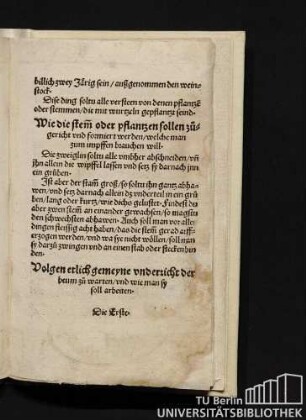 billich zwey Järig sein/ aussgenomen den wein⸗
stock.
Dise ding soltu alle versteen von denen pflantzē
oder stemmen/ die mit wurtzeln gepflantzt seind.
Wie die stem̄ oder pflantzen sollen zů⸗
gericht vnd formiert werden/ welche man
zum impffen brauchen will.
Die zweiglin soltu alle vmbher abschneiden/ vn̄
jhn allein die wipffel lassen vnd setz sy darnach jnn
ein grůben.
Ist aber der stam̄ groß/ so soltu jhn gantz abha⸗
wen/ vnd setz darnach allein dz vnderteil in ein grů
ben/ lang oder kurtz/ wie dichs gelustet. Findest du
aber zwen stem̄ an einander gewachsen/ so magstu
den schwechsten abhawen. Auch soll man vor allen
dingen fleissig acht haben/ das die stem̄ gerad auff⸗
erzogen werden/ vnd wa sye nicht wöllen/ soll man
sy darzů zwingen vnd an einen stab oder stecken bin
den.
Volgen etlich gemeyne vnderricht der
beum zů warten/ vnd wie man sy
soll arbeiten.
Die Erste.
TU Berlin
UNIVERSITÄTSBIBLIOTHEK